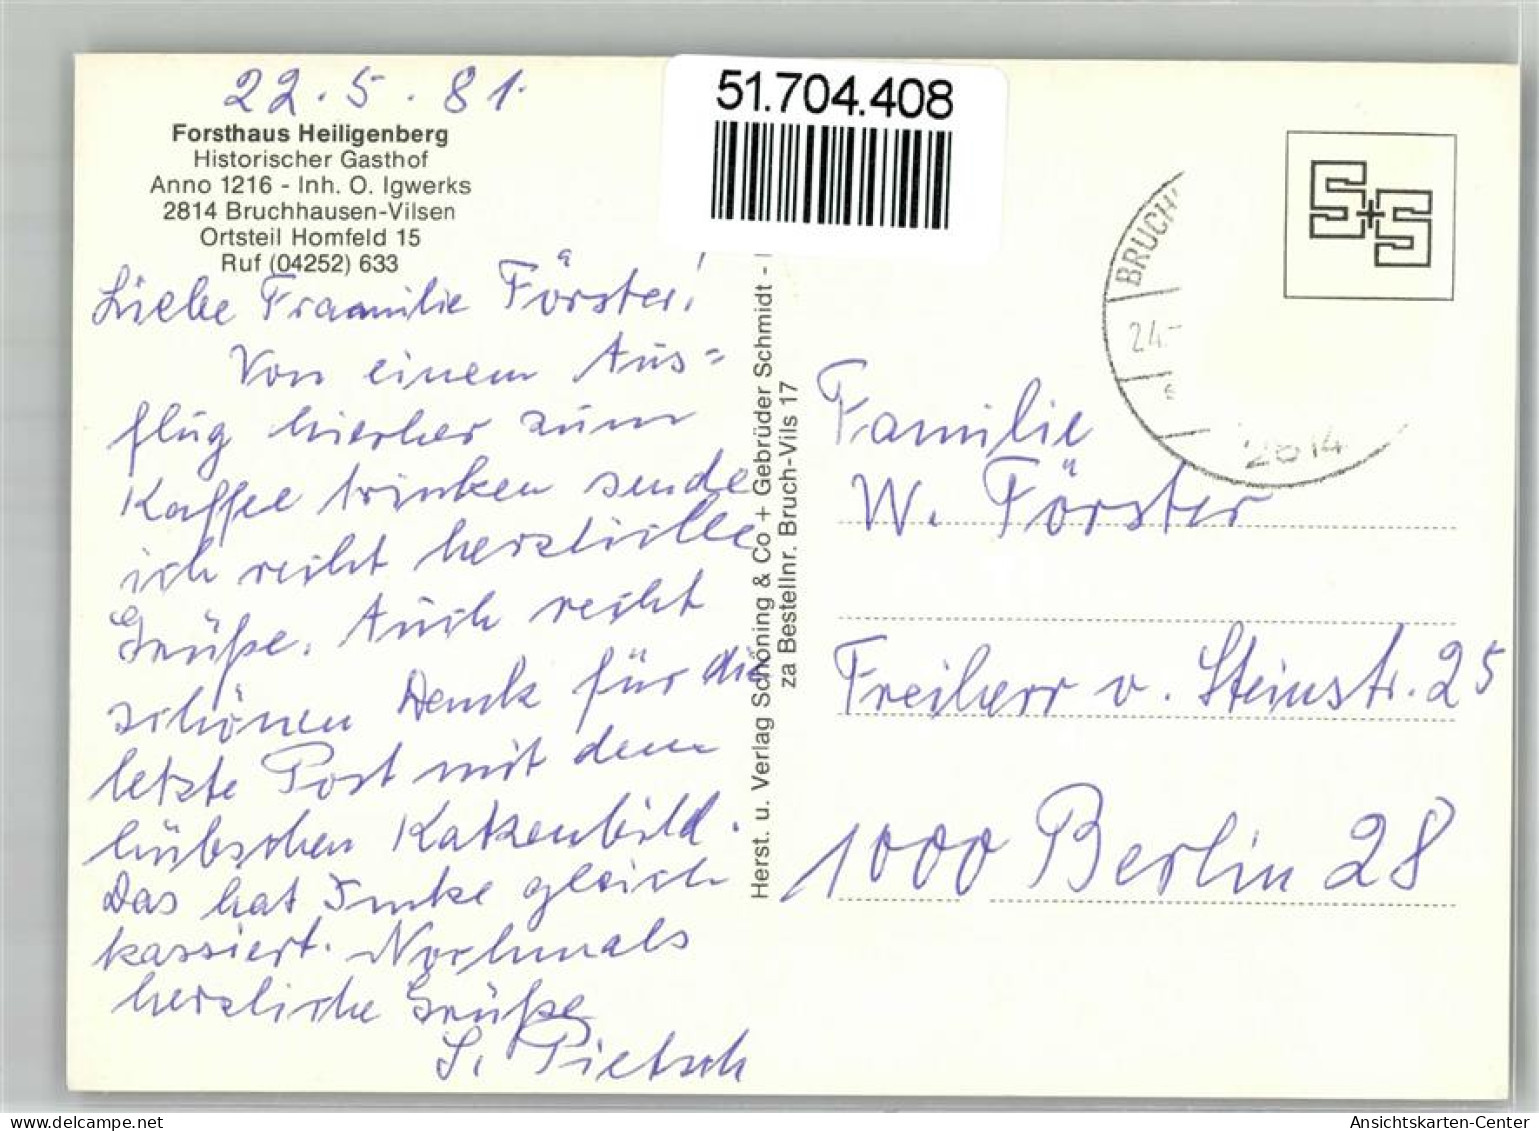 22.5.81.
Forsthaus Heiligenberg
Historischer Gasthof
Anno 1216 - Inh. O. Igwerks
2814 Bruchhausen-Vilsen
Ortsteil Homfeld 15
Ruf (04252) 633
Liebe Framilie Förster!
Von einem Aus=
flug hierher zum
Kaffee trinken sende
ich recht herzliche
Grüße. Auch recht
schönen Dank für die
letzte Post mit dem
hübschen Katzenbild.
Das hat Imke gleich
kassiert. Nochmals
herzliche Grüße
S. Pietsch
51.704.408
Herst. u. Verlag Schöning & Co + Gebrüder Schmidt -
za Bestellnr. Bruch-Vils 17
S+S
BRUCH
24.-
2814
Familie
W. Förster
Freiherr v. Steinstr. 25
1000 Berlin 28
oldthing.de
Ansichtskarten-Center